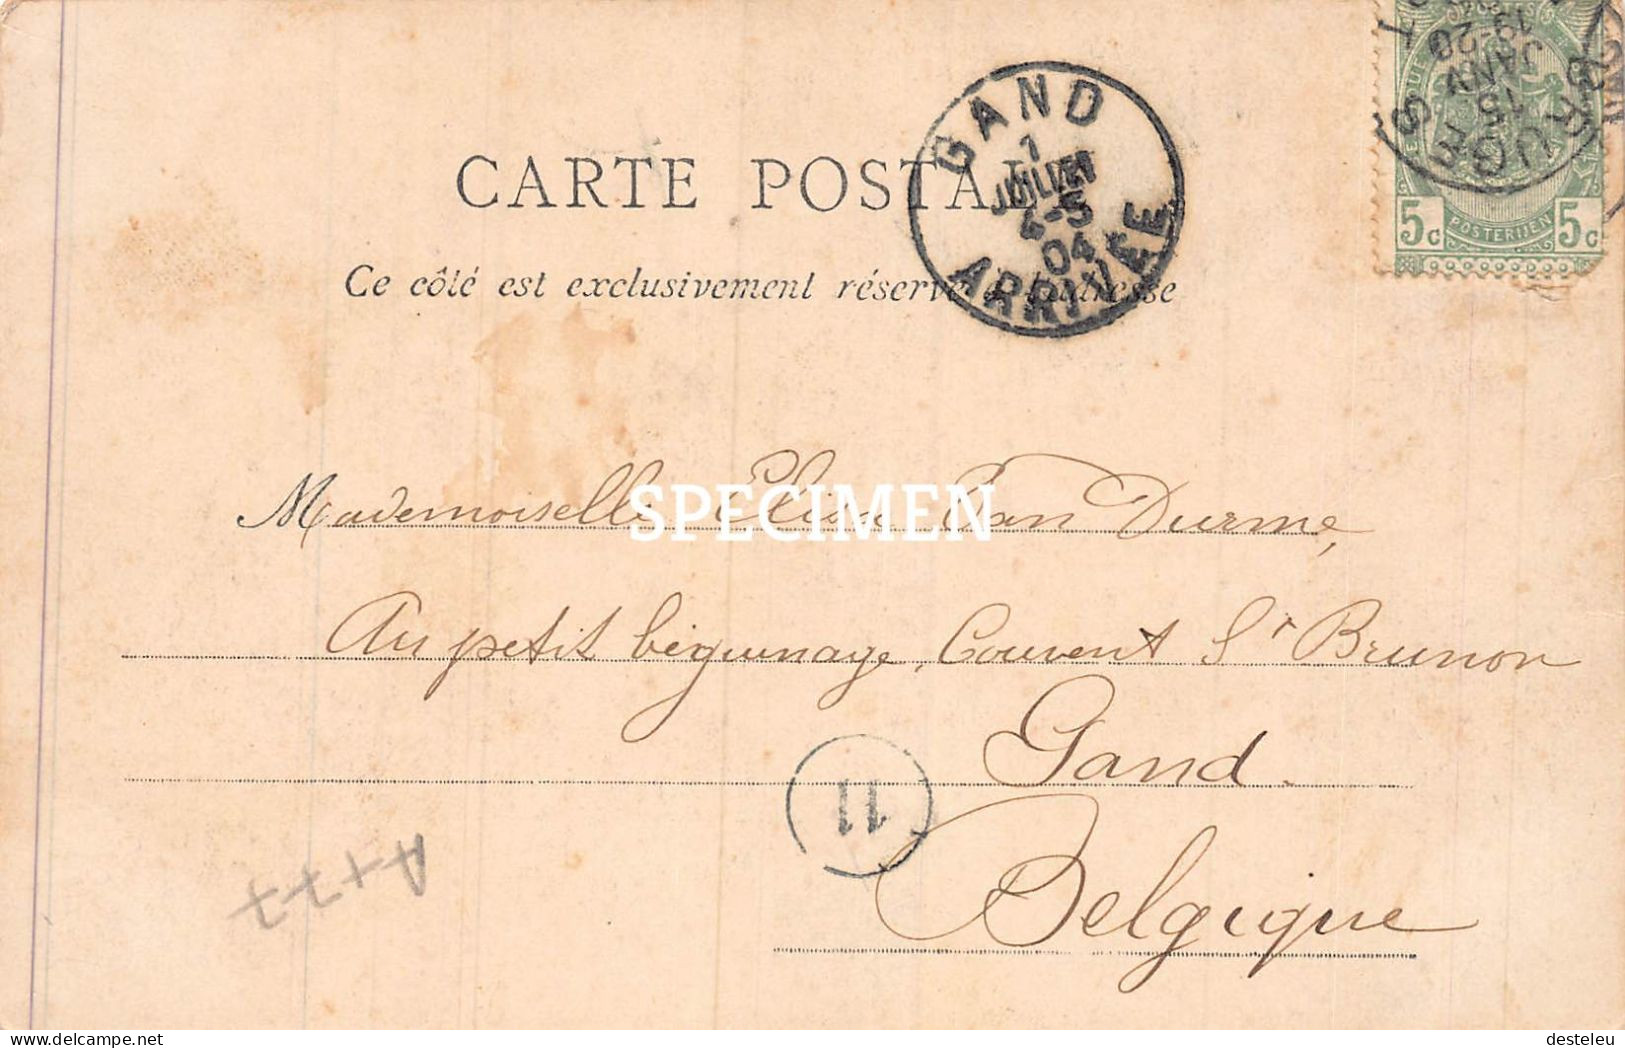 CARTE POSTALE
Ce côté est exclusivement réservé à l'adresse
GAND
1
JUILLET
4-5
04
ARRIVÉE
BRUGES
15
JANV
19-20
POSTERIJEN
5c 5c
SPECIMEN
Mademoiselle Elisa Van Durme,
Au petit béguinage, Couvent St Brunon
Gand.
Belgique
11
A177
delcampe.net
desteleu